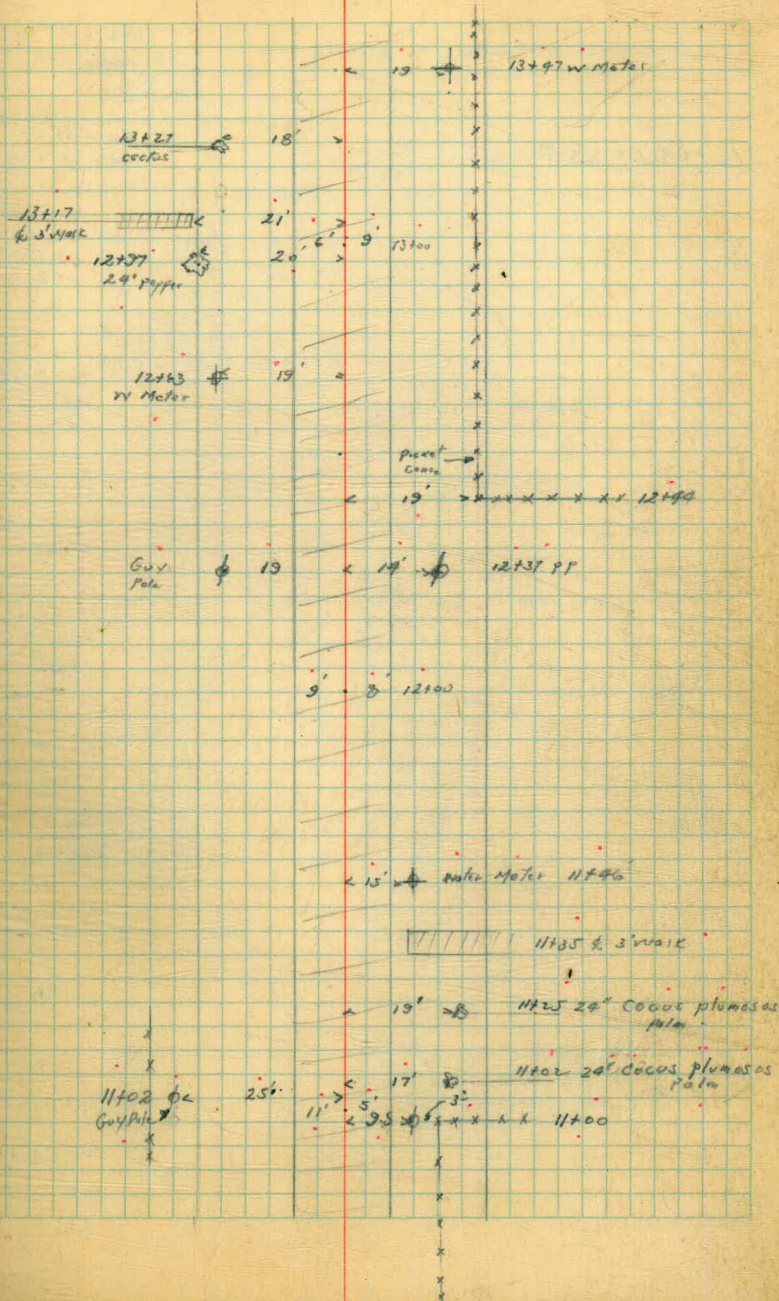 19 13+47 W Meter
13+27 18'
cactus
13+17 21'
℄ 3' Walk
6' 9' 13+00
12+97 20'
24" pepper
12+63 19'
W Meter
picket
19' 12+44
Guy 19 14' 12+37 PP
Pole
9' 8' 12+00
15' Water Meter 11+46
11+35 ℄ 3' Walk
19' 11+25 24" Cocus plumosos
palm
17' 11+02 24" Cocus plumosos
palm
11+02 25'
Guy Pole 11' 5' 3'
9.5 11+00